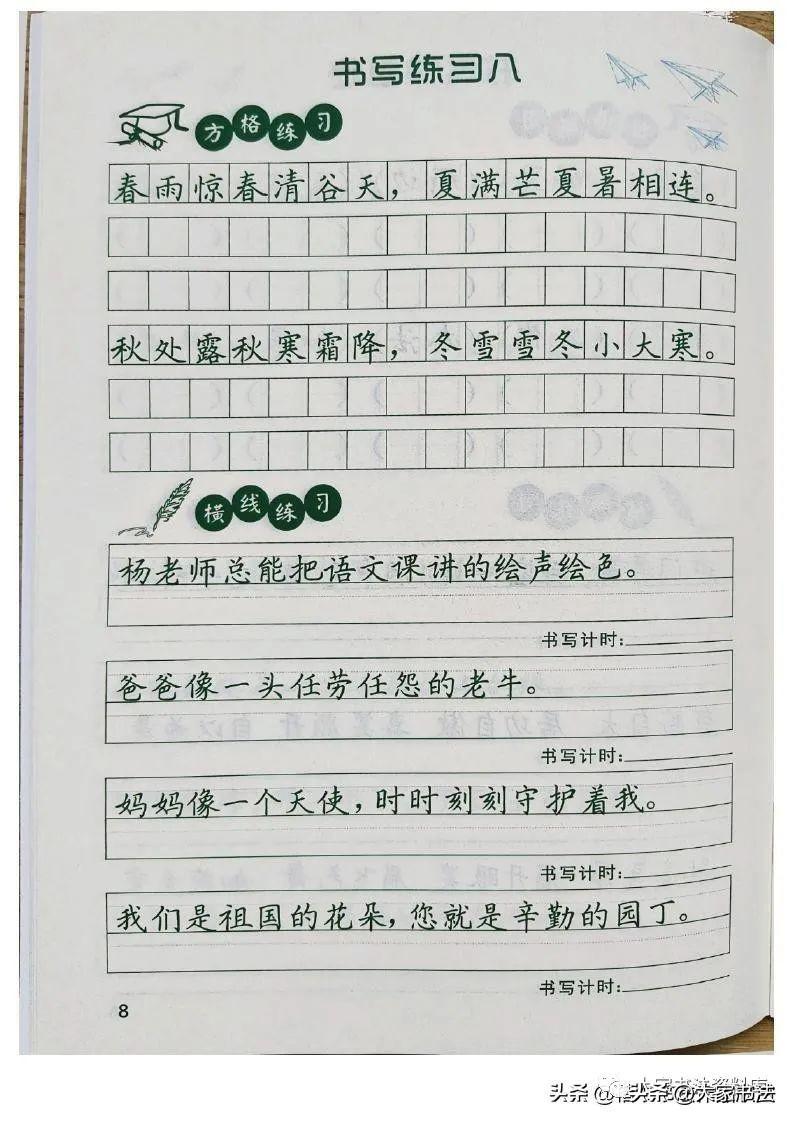 书写练习八
方格练习
春雨惊春清谷天，夏满芒夏暑相连。
秋处露秋寒霜降，冬雪雪冬小大寒。
横线练习
杨老师总能把语文课讲的绘声绘色。
书写计时：
爸爸像一头任劳任怨的老牛。
书写计时：
妈妈像一个天使，时时刻刻守护着我。
书写计时：
我们是祖国的花朵，您就是辛勤的园丁。
书写计时：
8
头条@大家书法